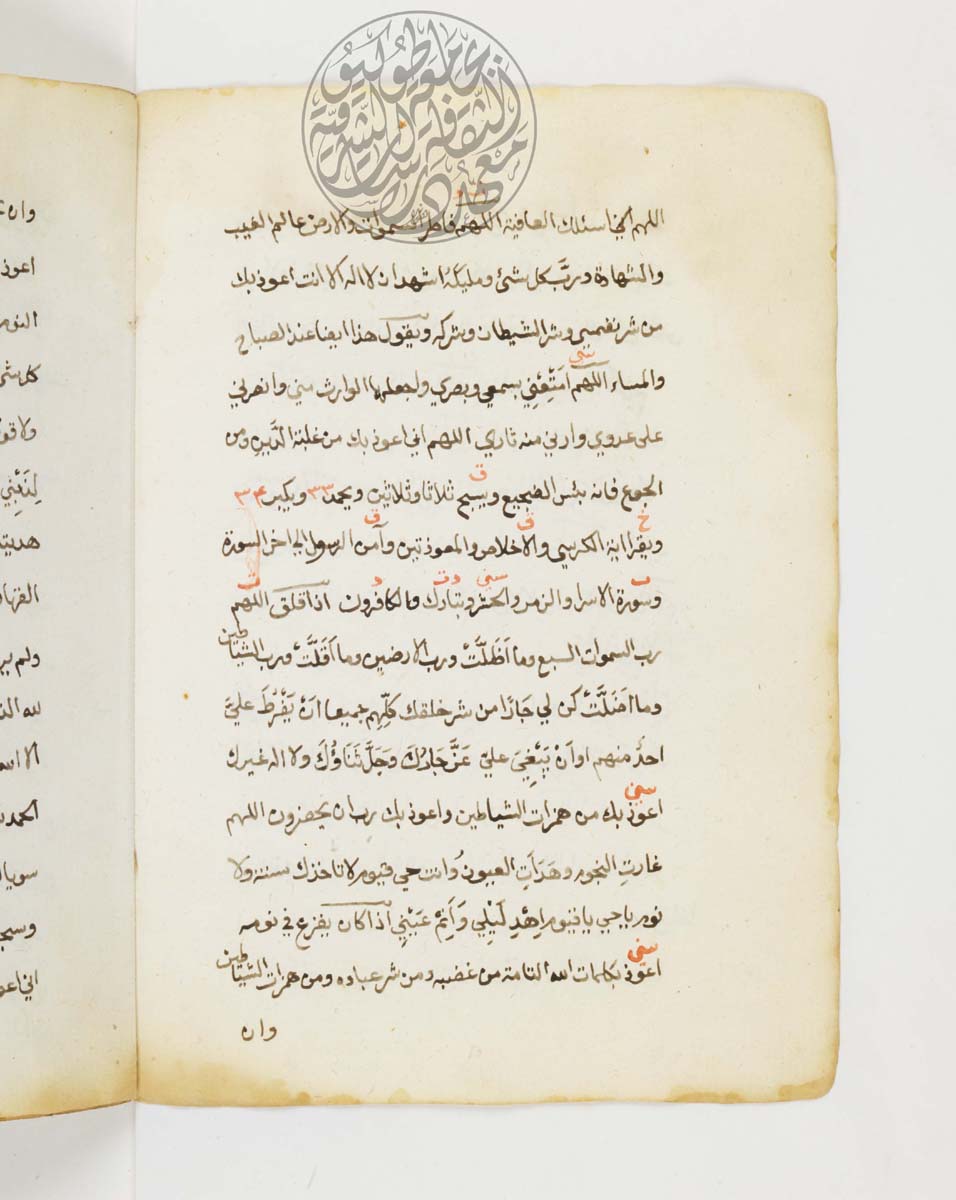 اللهم اني اسئلك العافية اللهم فاطر السموات والارض عالم الغيب
والشهادة ورب كل شئ ومليكه اشهد ان لا اله الا انت اعوذ بك
من شر نفسي وشر الشيطان وشركه ويقول هذا ايضا عند الصباح
سني
والمساء اللهم امتعني بسمعي وبصري واجعلهما الوارث مني وانصرني
على عدوي وارني منه ثاري اللهم اني اعوذ بك من غلبة الدين ومن
ق
الجوع فانه بئس الضجيع ويسبح ثلاثا وثلاثين ويحمد ٣٣ ويكبر ٣٤
خ ق ق
ويقرا اية الكرسي والاخلاص والمعوذتين وآمن الرسول الى اخر السورة
ت سني د ت د ت
وسورة الاسرا والزمر والحشر وتبارك والكافرون اذا قلق اللهم
رب السموات السبع وما اَظَلَّتْ ورب الارضين وما اَقَلَّتْ ورب الشياطين
وما اَضَلَّتْ كن لي جَارًا من شر خلقك كلِّهم جميعا اَنْ يَفْرُطَ عليَّ
احدٌ منهم او اَنْ يَبْغِيَ عليّ عَزَّ جَارُكَ وَجَلَّ ثَنَاؤُكَ ولا اله غيرك
سني
اعوذ بك من همزات الشياطين واعوذ بك رب ان يحضرون اللهم
غارتِ النجوم وهَدَأتِ العيون وانت حي قيوم لا تاخذك سنة ولا
نوم يا حي يا قيوم اِهْدِ لَيْلِي وَاَنِمْ عَيْنِي اذا كان يفزع في نومه
سني
اعوذ بكلمات الله التامة من غضبه ومن شر عباده ومن همزات الشياطين
وان